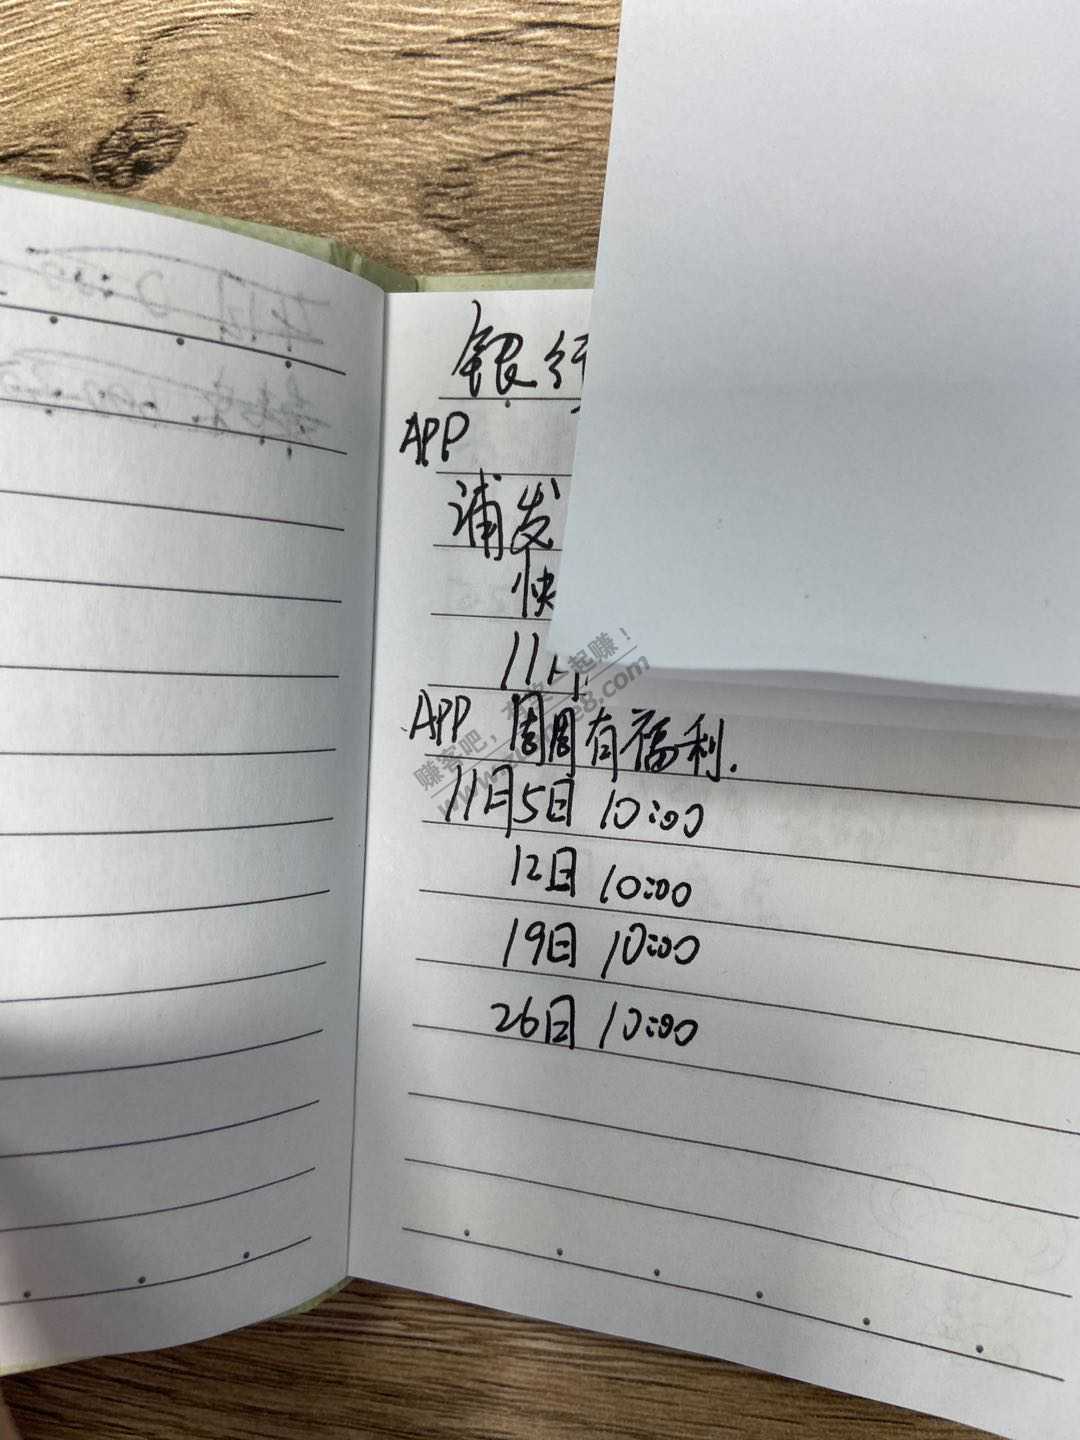 银行
APP
浦发
快
11
APP 周周有福利.
11月5日 10:00
12日 10:00
19日 10:00
26日 10:00